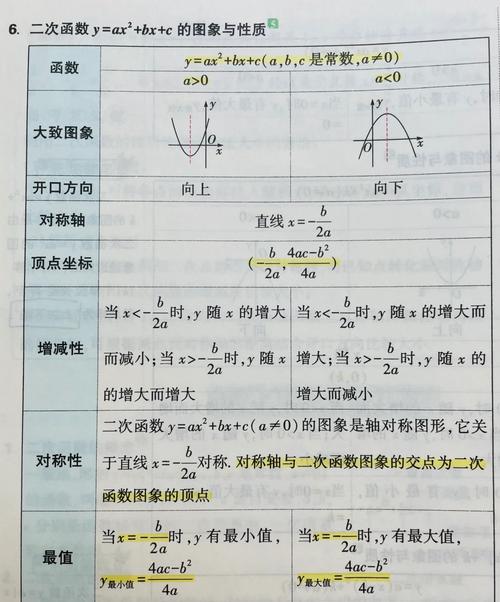 6. 二次函数 y=ax²+bx+c 的图象与性质
函数
y=ax²+bx+c(a,b,c 是常数,a≠0)
a>0
a<0
大致图象
y
O
x
y
O
x
开口方向
向上
向下
对称轴
直线 x=-b/2a
顶点坐标
(-b/2a, 4ac-b²/4a)
增减性
当 x<-b/2a时,y 随 x 的增大
而减小;当 x>-b/2a时,y 随 x
的增大而增大
当 x<-b/2a时,y 随 x 的增大而
增大;当 x>-b/2a时,y 随 x 的
增大而减小
对称性
二次函数 y=ax²+bx+c(a≠0)的图象是轴对称图形,它关
于直线 x=-b/2a对称. 对称轴与二次函数图象的交点为二次
函数图象的顶点
最值
当x=-b/2a时,y 有最小值,
y最小值=4ac-b²/4a
当x=-b/2a时,y 有最大值,
y最大值=4ac-b²/4a